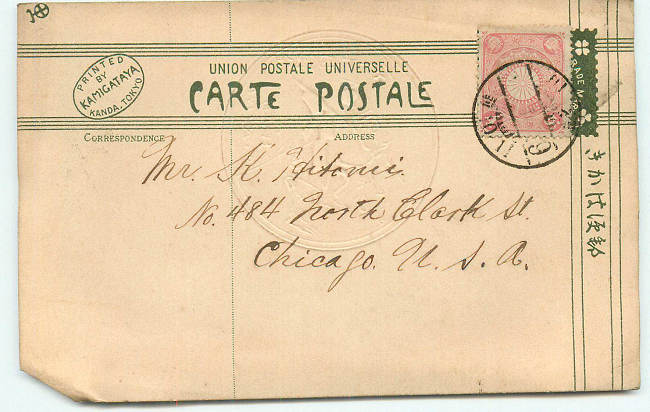 PRINTED
BY
KAMIGATAYA
KANDA.TOKYO
UNION POSTALE UNIVERSELLE
CARTE POSTALE
CORRESPONDENCE
ADDRESS
Mr. K. Hitomi.
No. 484 North Clark St.
Chicago. U. S. A.
きかは便郵